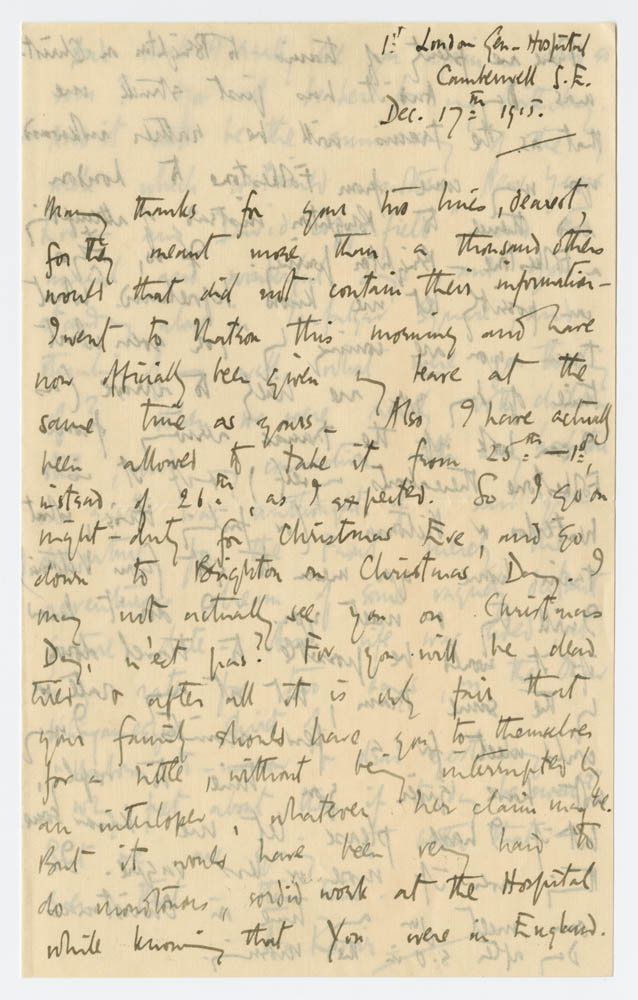 1st London Gen. Hospital
Camberwell S.E.
Dec. 17th 1915.
Many thanks for your two lines, dearest,
for they meant more than a thousand others
would that did not contain their information –
I went to Matron this morning and have
now officially been given my leave at the
same time as yours – Also I have actually
been allowed to take it from 25th – 1st,
instead of 26th, as I expected. So I go on
night-duty for Christmas Eve, and go
down to Brighton on Christmas Day. I
may not actually see you on Christmas
Day, n'est pas? For you will be dead
tired & after all it is only fair that
your family should have you to themselves
for a little, without being interrupted by
an interloper, whatever her claim may be.
But it would have been very hard to
do monotonous, sordid work at the Hospital
while knowing that You were in England.